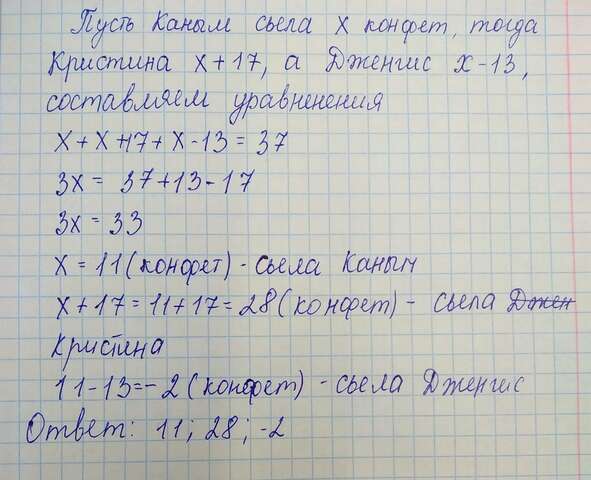 Пусть Каным сьела х конфет, тогда
Кристина х+17, а Дженгис х-13,
составляем уравненения
х + х+17 + х - 13 = 37
3х = 37+13-17
3х = 33
х = 11 (конфет) - сьела Каным
х + 17 = 11 + 17 = 28 (конфет) - сьела Джен
Кристина
11-13=-2 (конфет) - сьела Дженгис
Ответ: 11; 28; -2